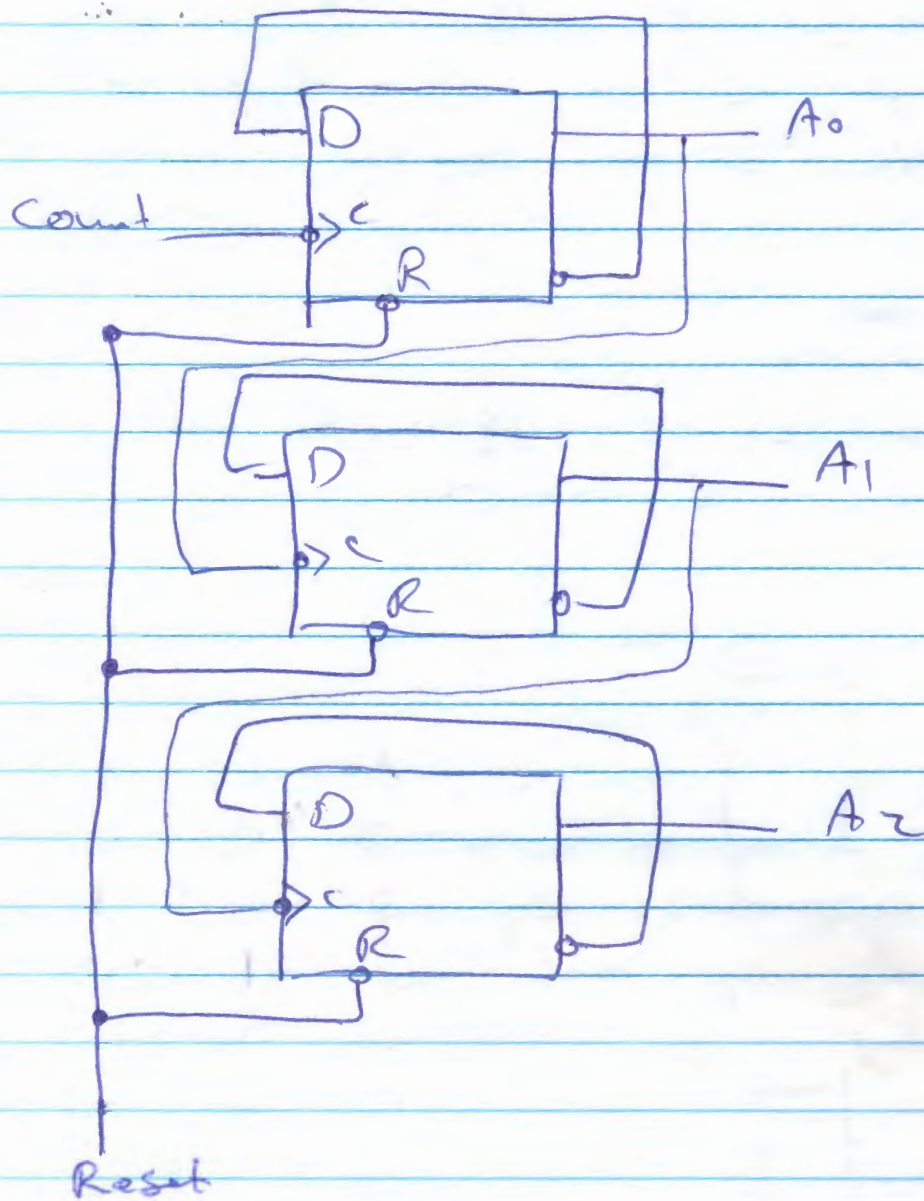 D
A0
Count
C
R
D
A1
C
R
D
A2
C
R
Reset